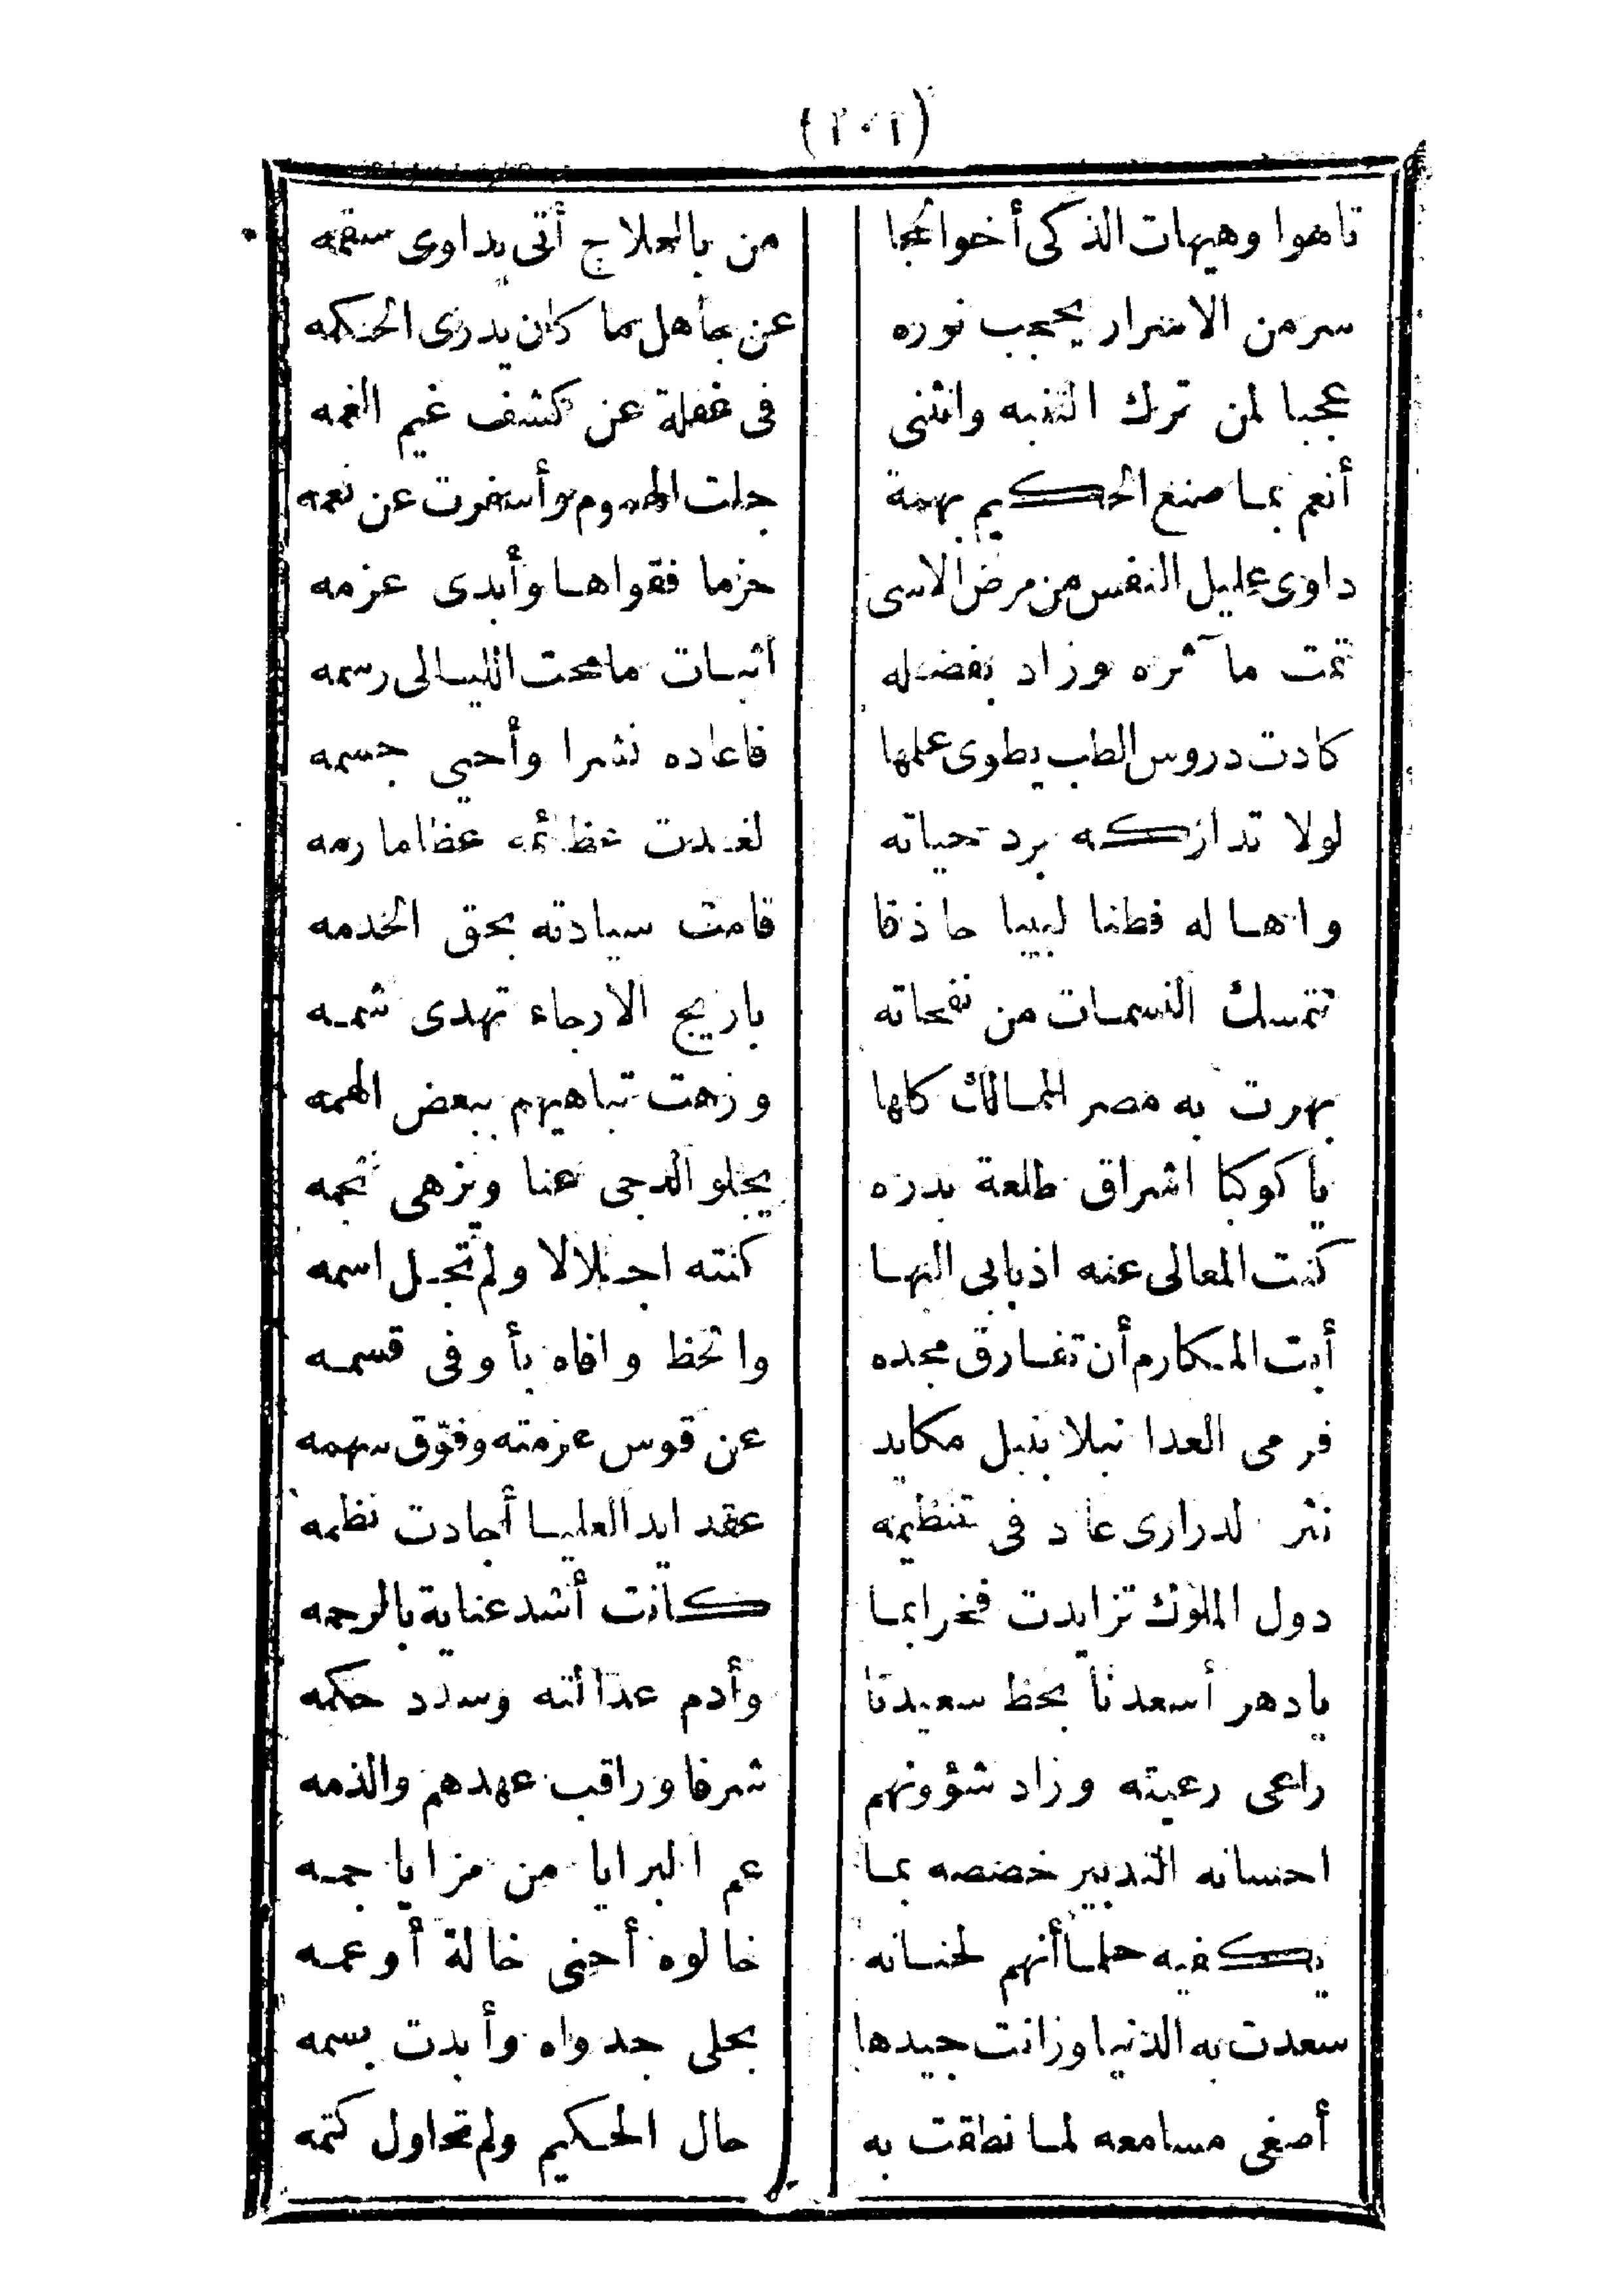 تاهوا وهيهات الذكى أخوالحجا من بالعلاج أتى يداوى سقمه
سر من الاسرار يحجب نوره عن جاهل ما كان يدرى الحكمه
عجبا لمن ترك التنبه وانثنى فى غفلة عن كشف غيم الغمه
أنعم بما صنع الحكيم بهمة جلت الهموم وأسفرت عن نعمه
داوى عليل النفس من مرض الاسى حزما فقواها وأبدى عزمه
تمت مآثره وزاد بفضله اثبات ما محت الليالى رسمه
كادت دروس الطب يطوى علمها فاعاده نشرا وأحيى جسمه
لولا تداركه برد حياته لغدت عظائمه عظاما رمه
واها له فطنا لبيبا حاذقا قامت سيادته بحق الخدمه
تتمسك النسمات من نفحاته باريج الارجاء تهدى شمه
بهرت به مصر الممالك كلها وزهت تباهيهم ببعض الهمه
يا كوكبا اشراق طلعة بدره يجلو الدجى عنا ويزهى نجمه
كنت المعالى عنه اذ بابى البها كنته اجلالا ولم تجل اسمه
أبت المكارم أن تفارق مجده والحظ وافاه بأوفى قسمه
فرمى العدا نبلا بنبل مكايد عن قوس عزمته وفوّق سهمه
نثر لدرارى عاد فى تنظيمه عقد ايد العليا أجادت نظمه
دول الملوك تزايدت فخرا بما كانت أشد عناية بالرحمه
يا دهر أسعدنا بحظ سعيدنا وأدم عدالته وسدد حكمه
راعى رعيته وزاد شؤونهم شرفا وراقب عهدهم والذمه
احسانه التدبير خصصه بما عم البرايا من مزايا جمه
يكفيه حلما أنهم لحنانه خالوه أحنى خالة أو عمه
سعدت به الدنيا وزانت جيدها بحلى جدواه وأبدت بسمه
أصغى مسامعه لما نطقت به حال الحكيم ولم تحاول كتمه